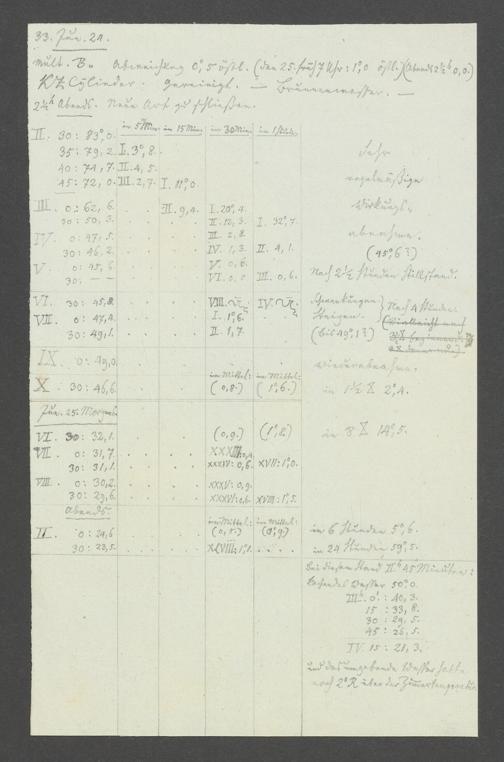 33. Jun. 24.
Mult. B. Abweichung 0°,5 östl. (den 25. früh 7 Uhr: 1°,0 östl.) (Abends 2½h 0,0.)
Cylinder. Gereinigt. — Brunnenwasser. —
2½h Abends. Neue Art zu schließen.
in 5 Min. in 15 Min. in 30 Min. in 1 Stunde
II. 30: 83°,0.
35: 79,2. I. 3°,8.
40: 74,7. II. 4,5.
45: 72,0. III. 2,7. I. 11°,0
Sehr
regelmäßige
Wirkungs-
abnahme.
(45°,6?)
III. 0: 62,6. . . II. 9,4. I. 20°,4.
30: 50,3. . . . II. 12,3. I. 32°,7.
IV. 0: 47,5. . . . III. 2,8.
30: 46,2. . . . IV. 1,3. II. 4,1.
V. 0: 45,6. . . . V. 0,6.
30: — — . . . VI. 0,0. III. 0,6. Nach 2½ Stunden Stillstand.
VI. 30: 45,8. . . . VIII. IV. Schwankungen
VII. 0: 47,4. . . . I. 1°,6. Steigen. Nach 4 Stunden
30: 49,1. . . . II. 1,7. (bis 49°,1?)
IX. 0: 49,0. Wiederabnahme.
im Mittel: im Mittel:
X. 30: 46,6. . . . (0,8.) (1°,6.) in 1½ 2°,4.
Jun. 25. Morgens.
VI. 30: 32,1. (0,9.) (1°,8.) in 8 14°,5.
VII. 0: 31,7. . . . XXXIII: 0,4.
30: 31,1. . . . XXXIV: 0,6. XVII: 1°,0.
VIII. 0: 30,2. . . . XXXV: 0,9.
30: 29,6. . . . XXXVI: 0,6. XVIII: 1°,5.
Abends.
im Mittel: im Mittel:
II. 0: 24,6. in 6 Stunden 5°,6.
30: 23,5. . . . XLVIII: 1°,1. . . . . in 24 Stunden 59°,5.
Bei diesem Stand IIh 45 Minuten:
kochendes Wasser 50°,0.
IIIh. 0': 40,3.
15: 33,8.
30: 29,5.
45: 26,5.
IV. 15: 21,3.
und das umgebende Wasser hatte
noch 2°R über der Zimmertemperatur